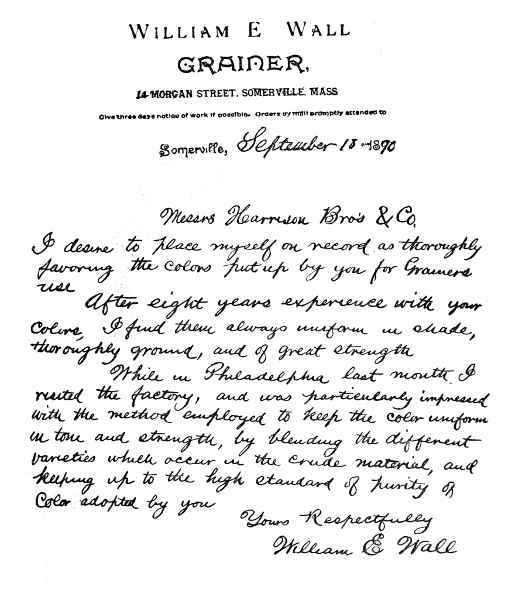 WILLIAM E WALL
GRAINER,
14 MORGAN STREET, SOMERVILLE, MASS
Give three days notice of work if possible. Orders by mail promptly attended to
Somerville, September 18 1890
Messrs Harrison Bro's & Co.
I desire to place myself on record as thoroughly
favoring the colors put up by you for Grainers
use
After eight years experience with your
Colors, I find them always uniform in shade,
thoroughly ground, and of great strength
While in Philadelphia last month I
visited the factory, and was particularly impressed
with the method employed to keep the color uniform
in tone and strength, by blending the different
varieties which occur in the crude material, and
keeping up to the high standard of purity of
Color adopted by you
Yours Respectfully
William E Wall